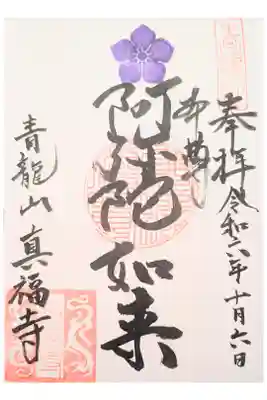 奉拝 令和六年十月六日
本尊
阿弥陀如来
青龍山 真福寺